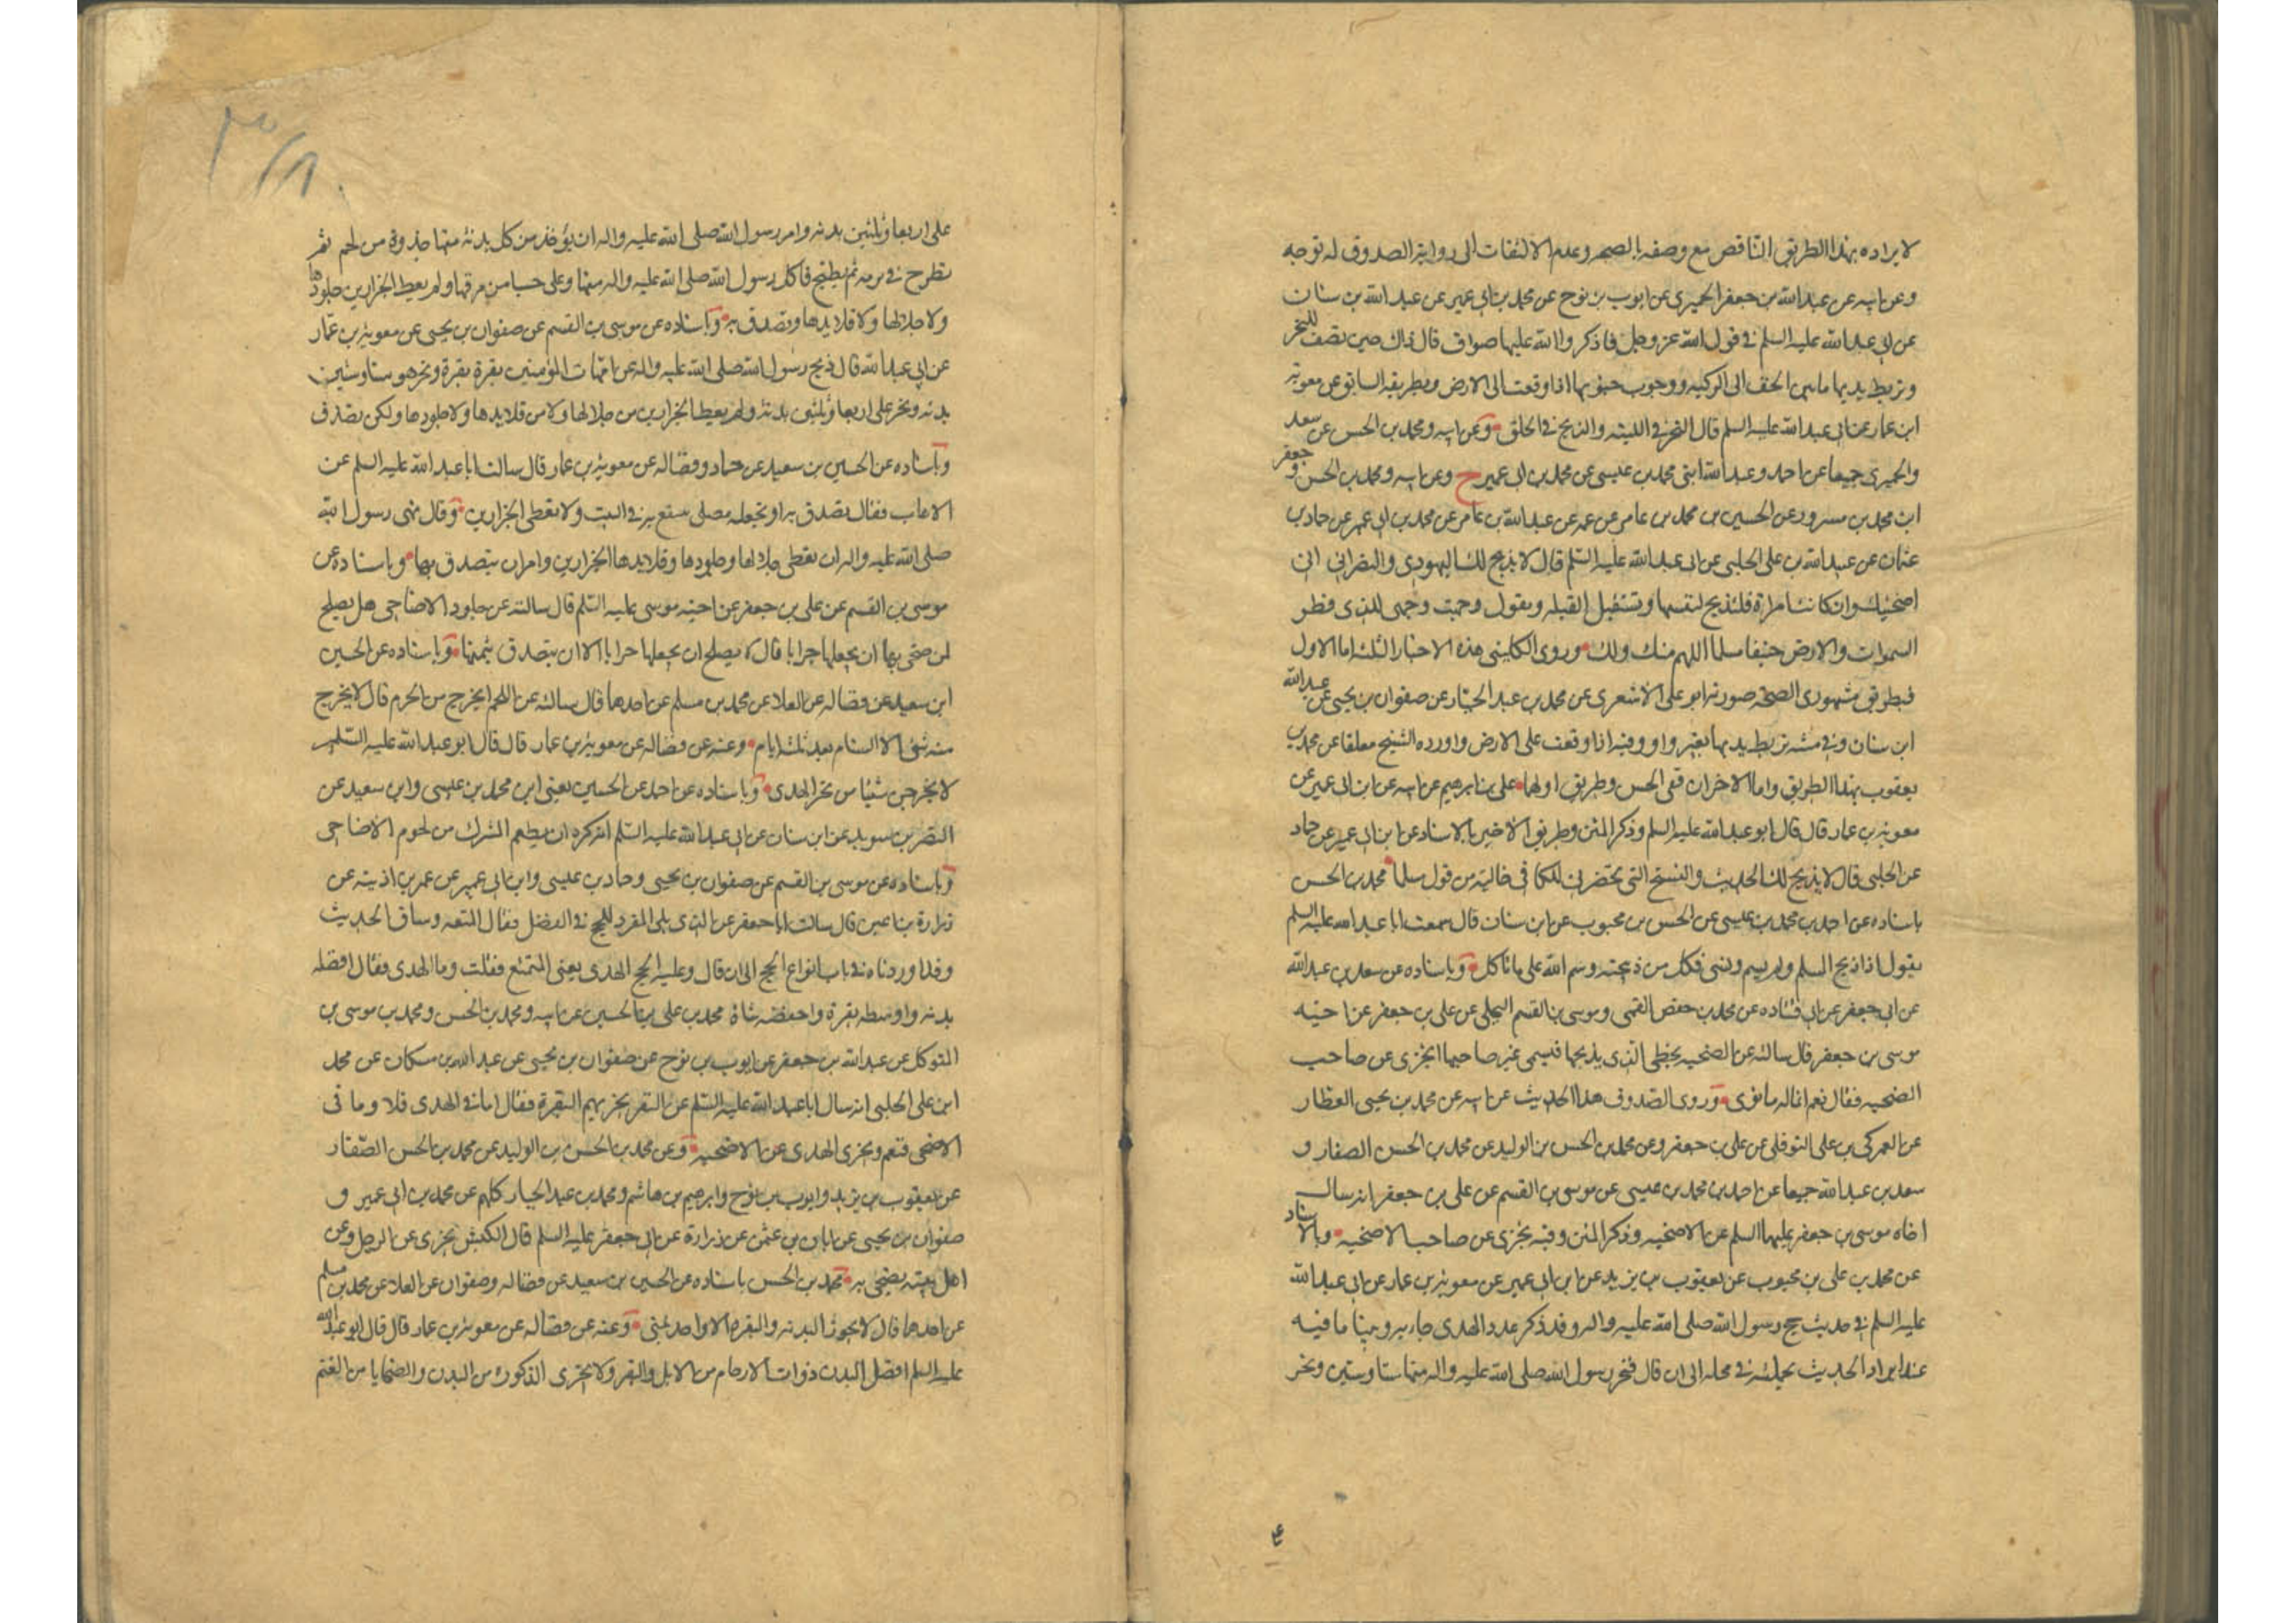 لايراده بهذا الطريق الناقص مع وصفه بالصحه وعدم الالتفات الى رواية الصدوق له توجه
وعن ابيه عن عبدالله بن جعفر الحميرى عن ايوب بن نوح عن محمد بن ابى عمير عن عبدالله بن سنان
عن ابى عبدالله عليه السلم فى قول الله عز وجل فاذكروا الله عليها صواف قال ذلك حين تصف للنحر
وتربط يديها مابين الخف الى الركبه ووجوب جنوبها اذا وقعت الى الارض وبطريقه السابق عن معويه
ابن عمار عن ابى عبدالله عليه السلم قال النحر فى اللبته والذبح فى الحلق وعن ابيه ومحمد بن الحسن عن سعد
والحميرى جميعا عن احمد وعبدالله ابنى محمد بن عيسى عن محمد بن ابى عمير ح وعن ابيه ومحمد بن الحسن و جعفر
ابن محمد بن مسرور عن الحسين بن محمد بن عامر عن عمه عن عبدالله بن عامر عن محمد بن ابى عمير عن حماد بن
عثمان عن عبيدالله بن على الحلبى عن ابى عبدالله عليه السلم قال لا يذبح لك اليهودى والنصرانى
اضحيتك وان كانت امراة فلتذبح لنفسها وتستقبل القبله وتقول وجهت وجهى للذى فطر
السموات والارض حنيفا مسلما اللهم منك ولك وروى الكلينى هذه الاخبار الثلثة اما الاول
فبطريق مشهورى الصحه صورته ابو على الاشعرى عن محمد بن عبد الجبار عن صفوان بن يحيى عن عبدالله
ابن سنان وفى متنه تربط يديها بغير واو وفيه اذا وقعت على الارض واورده الشيخ معلقا عن محمد بن
يعقوب بهذا الطريق واما الاخران ففى الحسن وطريق اولهما على بن ابرهيم عن ابيه عن ابن ابى عمير عن
معويه بن عمار قال قال ابو عبدالله عليه السلم وذكر المتن وطريق الاخير بالاسناد عن ابن ابى عمير عن حماد
عن الحلبى قال لا يذبح لك الحديث والنسخ التى تحضرنى للكافى خالية من قول مسلما محمد بن الحسن
باسناده عن احمد بن محمد بن عيسى عن الحسن بن محبوب عن ابن سنان قال سمعت ابا عبدالله عليه السلم
يقول اذا ذبح المسلم ولم يسم ونسى فكل من ذبيحته وسم الله على ما تاكل وباسناده عن سعد بن عبدالله
عن ابى جعفر عن ابى قتاده عن محمد بن حفص القمى وموسى بن القسم البجلى عن على بن جعفر عن اخيه
موسى بن جعفر قال سالته عن الضحيه يخطى الذى يذبحها فيسمى غير صاحبها ايجزى عن صاحب
الضحيه فقال نعم انما له مانوى وروى الصدوق هذا الحديث عن ابيه عن محمد بن يحيى العطار
عن العمركى بن على النوفلى عن على بن جعفر وعن محمد بن الحسن بن الوليد عن محمد بن الحسن الصفار و
سعد بن عبدالله جميعا عن احمد بن محمد بن عيسى عن موسى بن القسم عن على بن جعفر انه سال
اخاه موسى بن جعفر عليهما السلم عن الاضحيه وذكر المتن وفيه يجزى عن صاحب الاضحيه وبالاسناد
عن محمد بن على بن محبوب عن يعقوب بن يزيد عن ابن ابى عمير عن معويه بن عمار عن ابى عبدالله
عليه السلم فى حديث حج رسول الله صلى الله عليه واله وقد ذكر عدد الهدى جاء به وبينا مافيه
عند ايراد الحديث بجملته فى محله الى ان قال فنحر رسول الله صلى الله عليه واله منها ستا وستين ونحر
على اربعا وثلثين بدنه وامر رسول الله صلى الله عليه واله ان يؤخذ من كل بدنة منها جذوة من لحم ثم
تطرح فى برمه ثم يطبخ فاكل رسول الله صلى الله عليه واله منها وعلى حسيا من مرقها ولم يعط الجزارين جلودها
ولا جلالها ولا قلايدها وتصدق به وباسناده عن موسى بن القسم عن صفوان بن يحيى عن معوية بن عمار
عن ابى عبدالله قال ذبح رسول الله صلى الله عليه واله عن امهات المؤمنين بقرة بقرة ونحر هو ستا وستين
بدنه ونحر على اربعا وثلثين بدنة ولم يعط الجزارين من جلالها ولا من قلايدها ولا جلودها ولكن تصدق
وباسناده عن الحسين بن سعيد عن حماد وفضاله عن معوية بن عمار قال سالت ابا عبدالله عليه السلم عن
الاهاب فقال تصدق به او تجعله مصلى ينتفع به فى البيت ولا تعطى الجزارين وقال نهى رسول الله
صلى الله عليه واله ان تعطى جلالها وجلودها وقلايدها الجزارين وامر ان يتصدق بها وباسناده عن
موسى بن القسم عن على بن جعفر عن اخيه موسى عليه السلم قال سالته عن جلود الاضاحى هل يصلح
لمن ضحى بها ان يجعلها جرابا قال لا يصلح ان يجعلها جرابا الا ان يتصدق بثمنها وباسناده عن الحسين
ابن سعيد عن فضاله عن العلا عن محمد بن مسلم عن احدهما قال سالته عن اللحم ايخرج من الحرم قال لا يخرج
منه شئ الا السنام بعد ثلثة ايام وعنه عن فضاله عن معوية بن عمار قال قال ابو عبدالله عليه السلم
لا يخرجن شيئا من نحر الهدى وباسناده عن احمد عن الحسين يعنى ابن محمد بن عيسى وابن سعيد عن
النضر بن سويد عن ابن سنان عن ابى عبدالله عليه السلم انه كره ان يطعم المشرك من لحوم الاضاحى
وباسناده عن موسى بن القسم عن صفوان بن يحيى وحماد بن عيسى وابن ابى عمير عن عمر بن اذينه عن
زرارة بن اعين قال سالت ابا جعفر عن الذى يلى المفرد للحج فى الفضل فقال المتعه وساق الحديث
وقد اوردناه فى باب انواع الحج الى ان قال وعليه الحج الهدى يعنى المتمتع فقلت وما الهدى فقال افضله
بدنه واوسطه بقرة واخفضه شاة محمد بن على بن الحسين عن ابيه ومحمد بن الحسن ومحمد بن موسى بن
المتوكل عن عبدالله بن جعفر عن ايوب بن نوح عن صفوان بن يحيى عن عبدالله بن مسكان عن محمد
ابن على الحلبى انه سال ابا عبدالله عليه السلم عن النفر تجزيهم البقرة فقال اما فى الهدى فلا وما فى
الاضحى فنعم ويجزى الهدى عن الاضحيه وعن محمد بن الحسن بن الوليد عن محمد بن الحسن الصفار
عن يعقوب بن يزيد وايوب بن نوح وابرهيم بن هاشم ومحمد بن عبد الجبار كلهم عن محمد بن ابى عمير و
صفوان بن يحيى عن ابان بن عثمن عن زرارة عن ابى جعفر عليه السلم قال الكبش يجزى عن الرجل وعن
اهل بيته يضحى به محمد بن الحسن باسناده عن الحسين بن سعيد عن فضاله وصفوان عن العلا عن محمد بن مسلم
عن احدهما قال لا يجوز البدنه والبقره الا واحد بمنى وعنه عن فضاله عن معوية بن عمار قال قال ابو عبدالله
عليه السلم افضل البدن ذوات الارحام من الابل والبقر ولا يجزى الذكورة من البدن والضحايا من الغنم